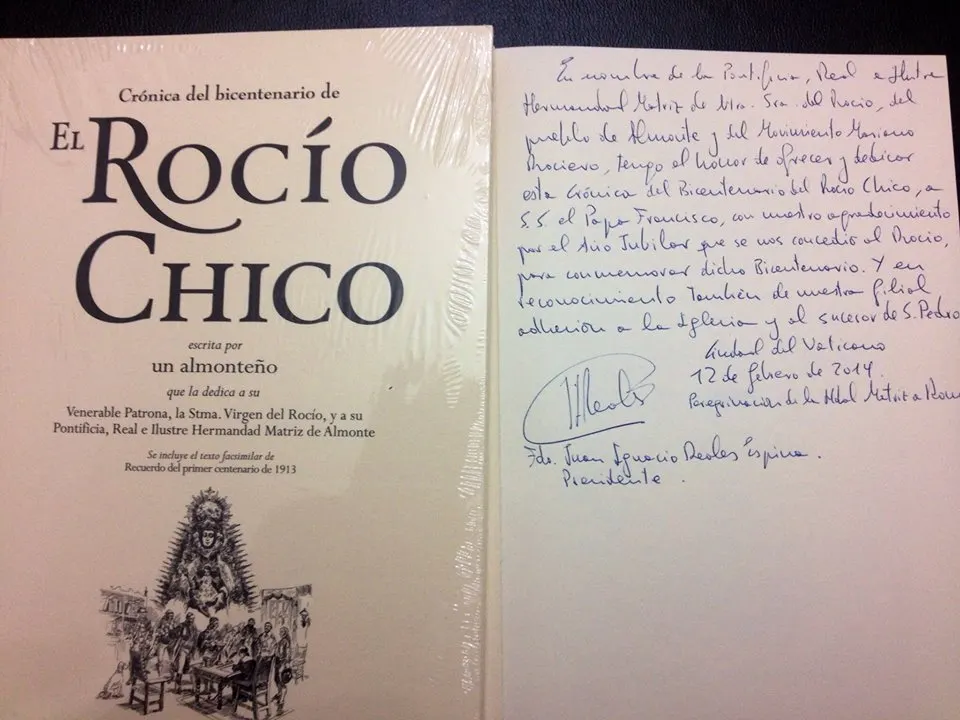 Crónica del bicentenario de
EL ROCÍO
CHICO
escrita por
un almonteño
que la dedica a su
Venerable Patrona, la Stma. Virgen del Rocío, y a su
Pontificia, Real e Ilustre Hermandad Matriz de Almonte
Se incluye el texto facsimilar de
Recuerdo del primer centenario de 1913
En nombre de la Pontificia, Real e Ilustre
Hermandad Matriz de Ntra. Sra. del Rocío, del
pueblo de Almonte y del Movimiento Mariano
Rociero, tengo el honor de ofrecer y dedicar
esta Crónica del Bicentenario del Rocío Chico, a
S.S. el Papa Francisco, con nuestro agradecimiento
por el Año Jubilar que se nos concedió al Rocío,
para conmemorar dicho Bicentenario. Y en
reconocimiento también de nuestra filial
adhesión a la Iglesia y al sucesor de S. Pedro
Ciudad del Vaticano
12 de febrero de 2014.
Peregrinación de la Hdad Matriz a Roma
Fdo. Juan Ignacio Reales Espina.
Presidente.